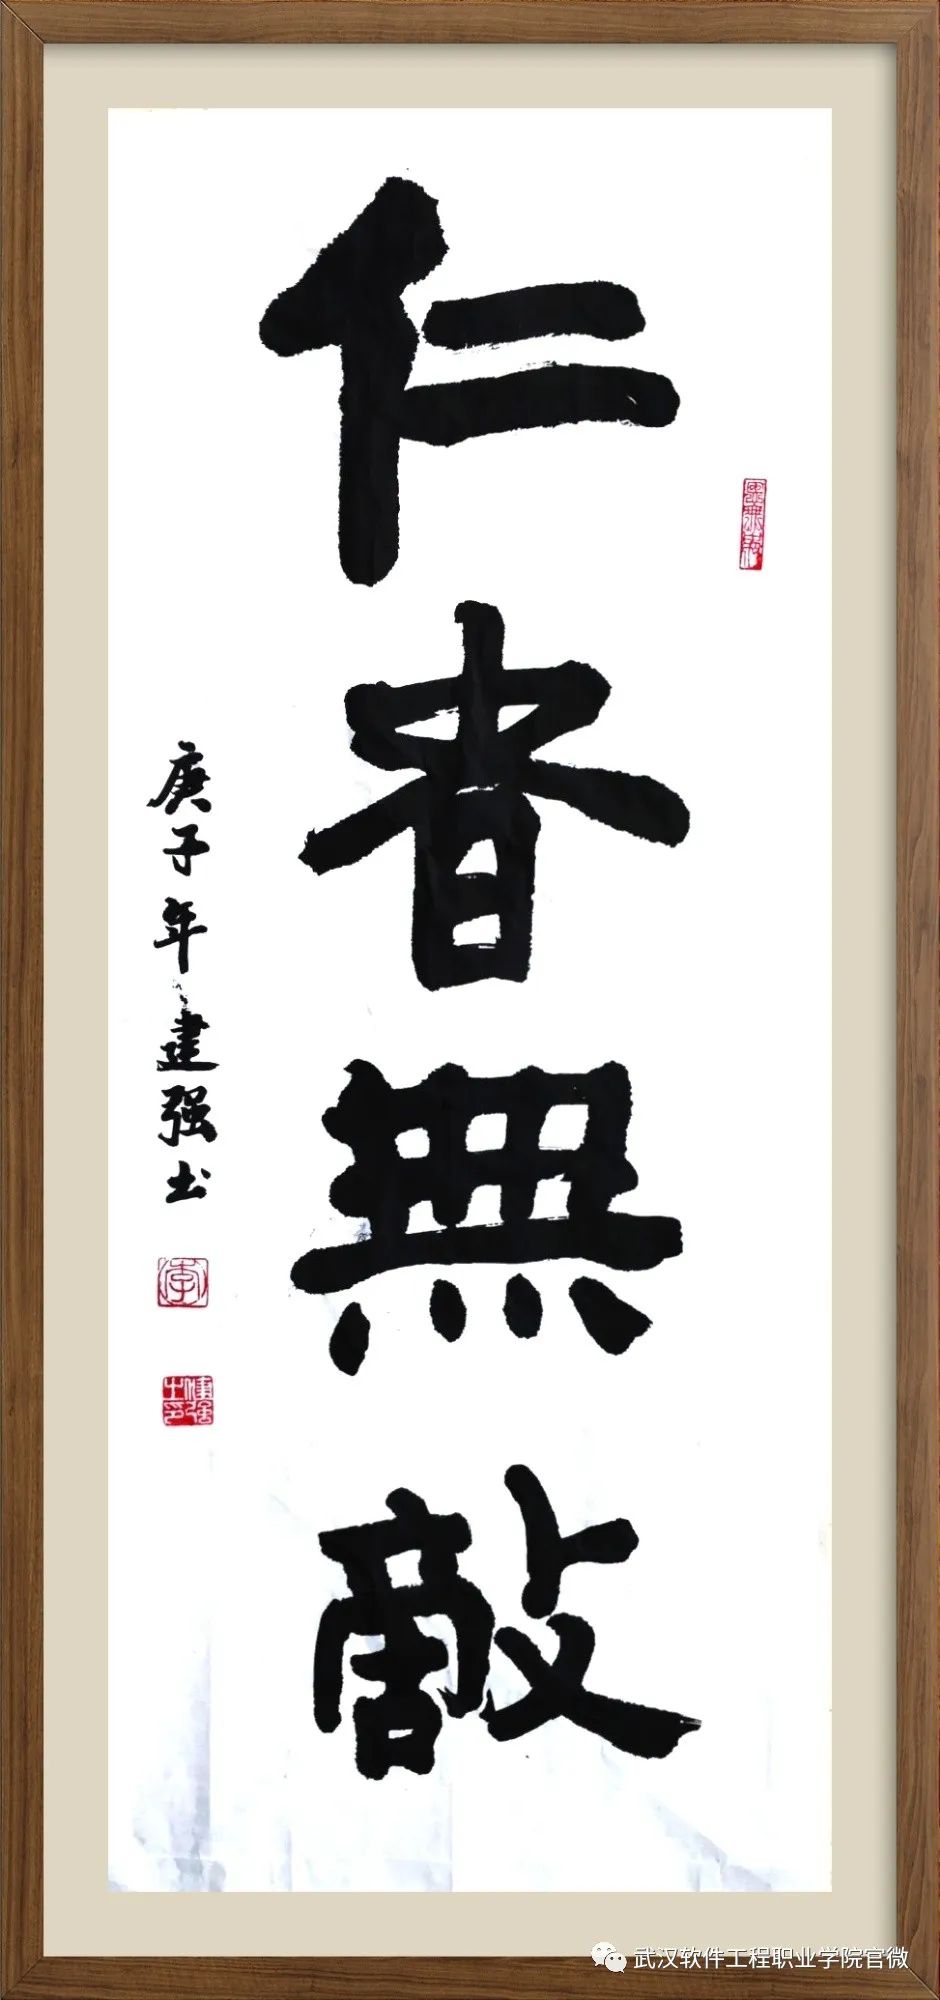 仁者無敵
庚子年建强书
李
建強之印
武汉软件工程职业学院官微